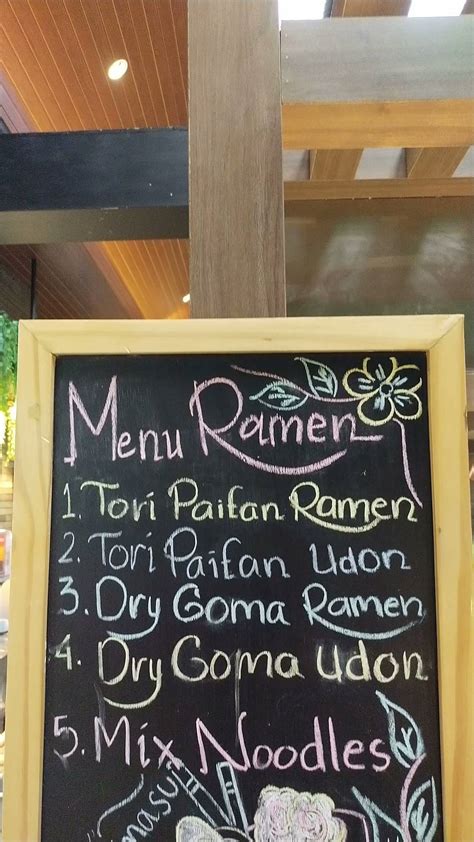 Menu Ramen
1. Tori Paitan Ramen
2. Tori Paitan Udon
3. Dry Goma Ramen
4. Dry Goma Udon
5. Mix Noodles